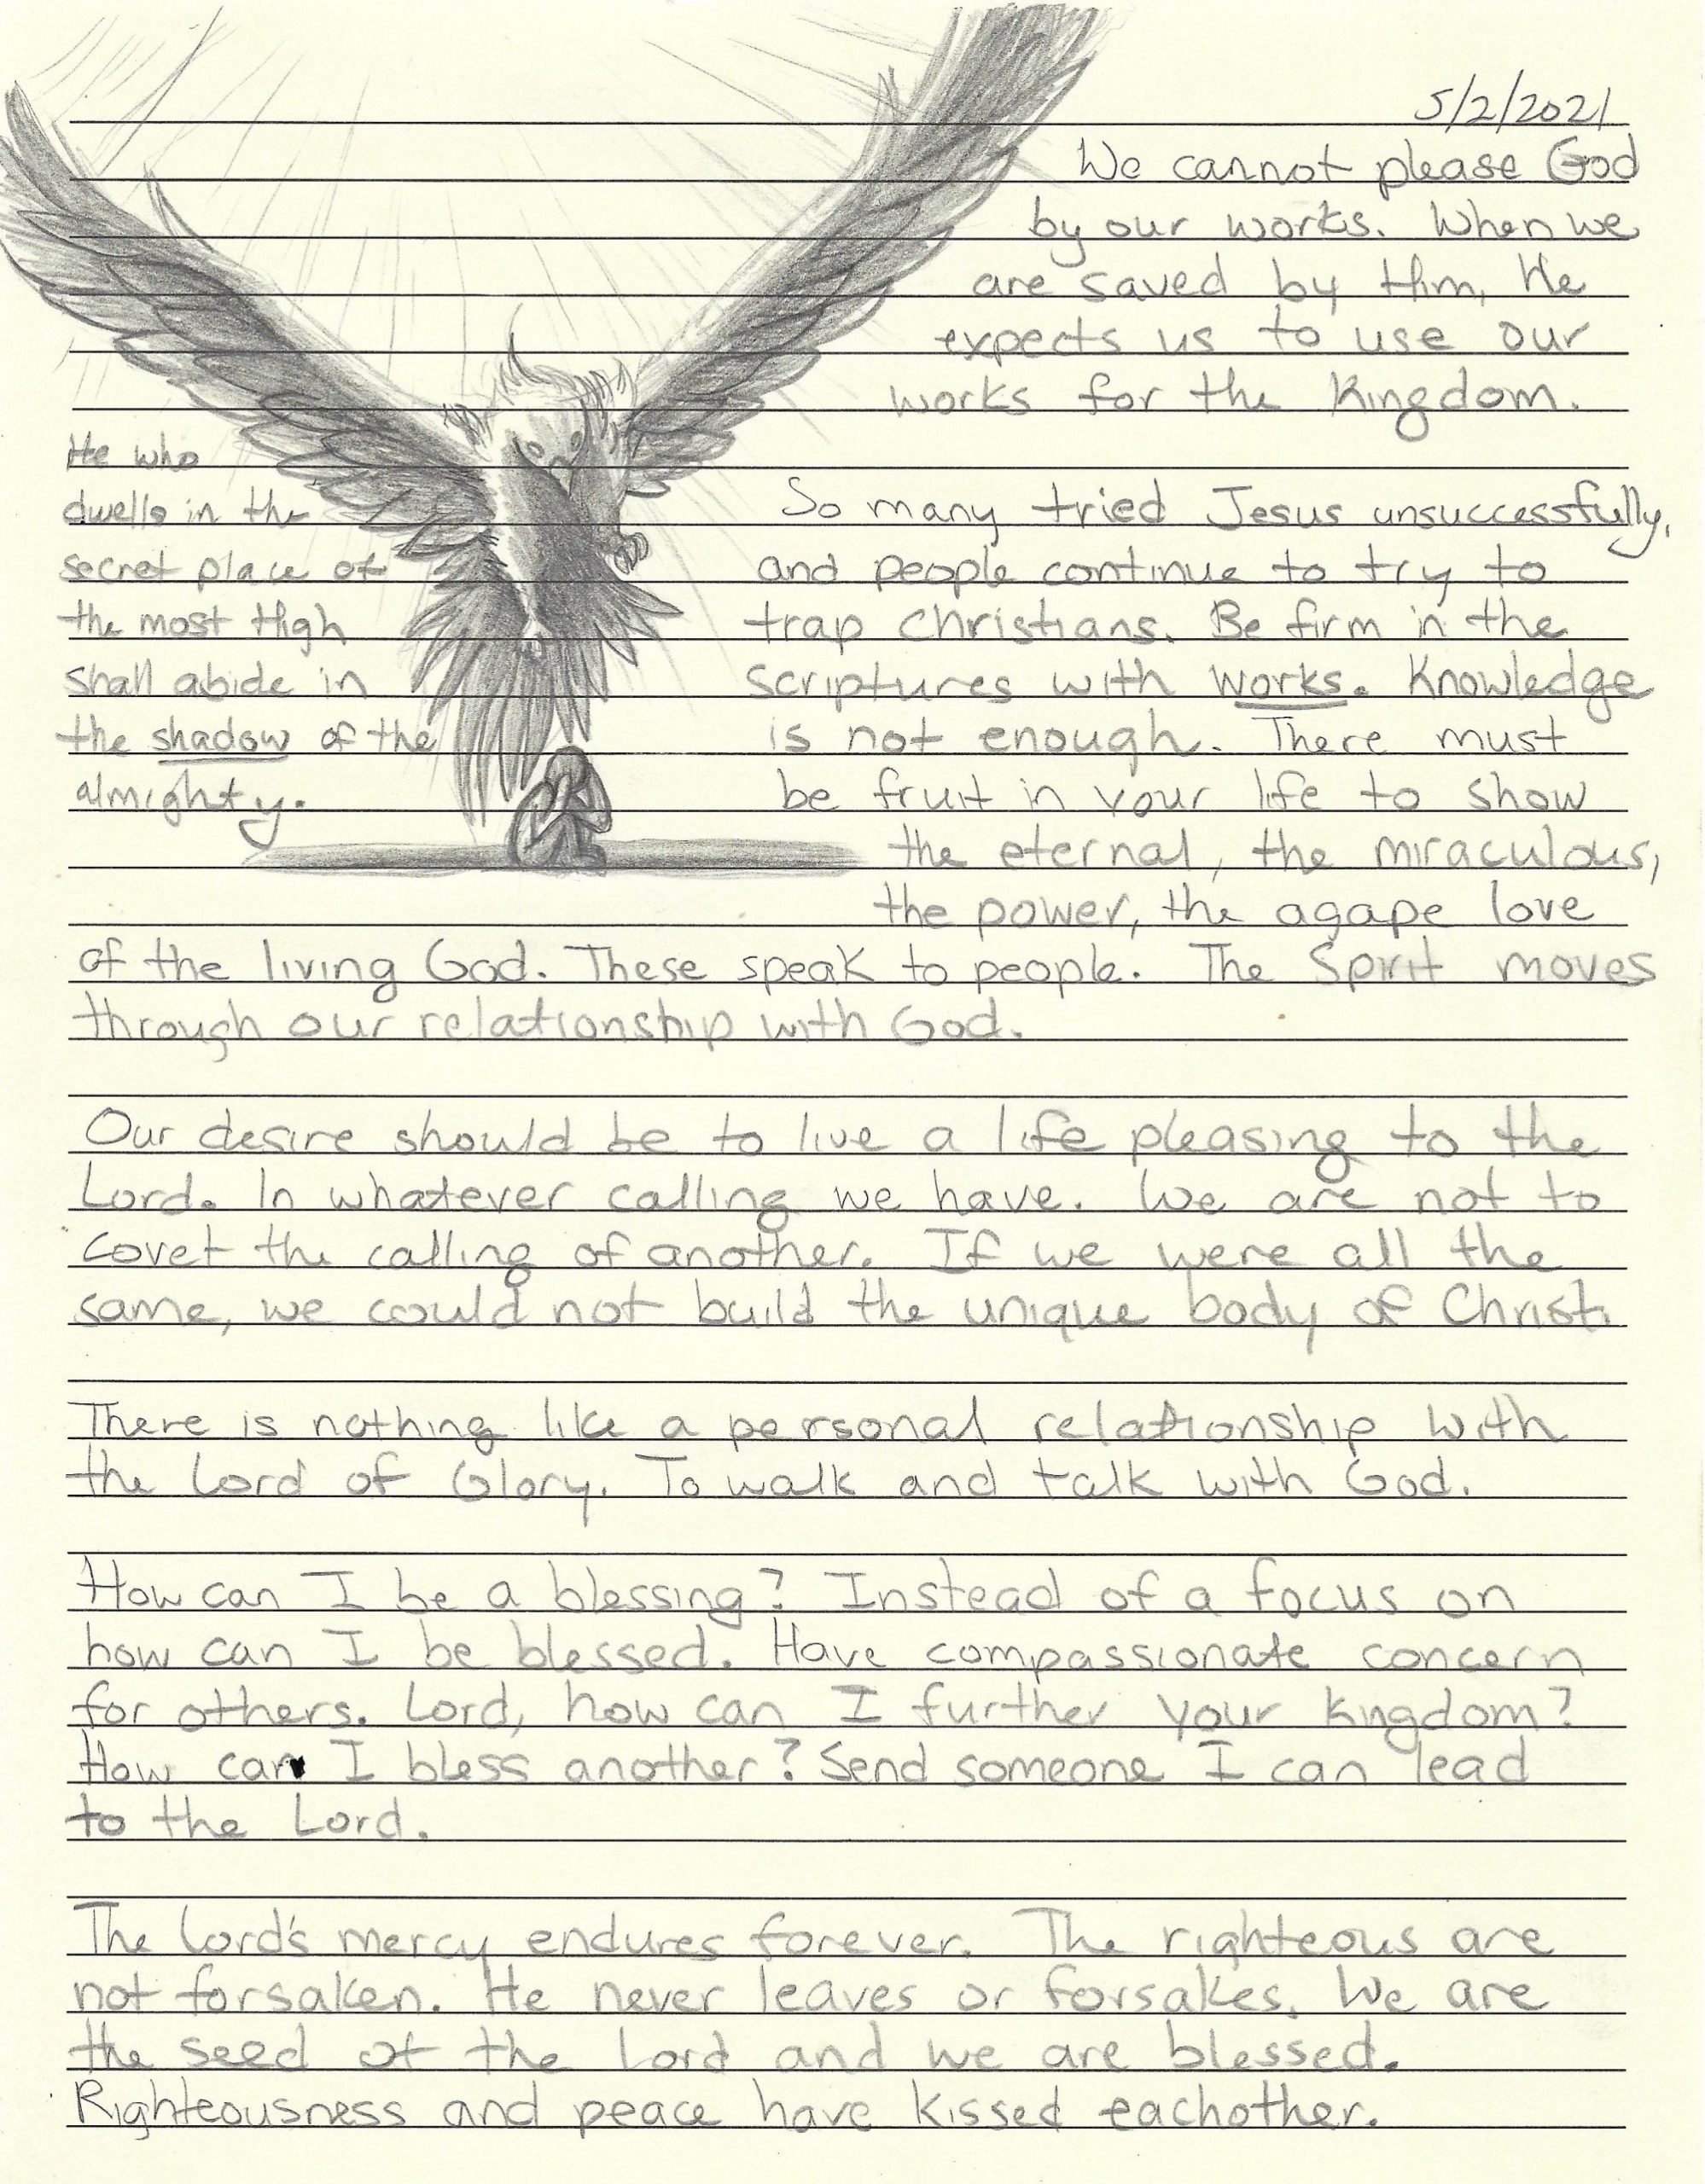 5/2/2021
We cannot please God
by our works. When we
are saved by Him, He
expects us to use our
works for the Kingdom.
He who
dwells in the
secret place of
the most High
shall abide in
the shadow of the
almighty.
So many tried Jesus unsuccessfully,
and people continue to try to
trap Christians. Be firm in the
scriptures with works. Knowledge
is not enough. There must
be fruit in your life to show
the eternal, the miraculous,
the power, the agape love
of the living God. These speak to people. The Spirit moves
through our relationship with God.
Our desire should be to live a life pleasing to the
Lord. In whatever calling we have. We are not to
covet the calling of another. If we were all the
same, we could not build the unique body of Christ.
There is nothing like a personal relationship with
the Lord of Glory. To walk and talk with God.
How can I be a blessing? Instead of a focus on
how can I be blessed. Have compassionate concern
for others. Lord, how can I further your kingdom?
How can I bless another? Send someone I can lead
to the Lord.
The Lord's mercy endures forever. The righteous are
not forsaken. He never leaves or forsakes. We are
the seed of the Lord and we are blessed.
Righteousness and peace have kissed eachother.